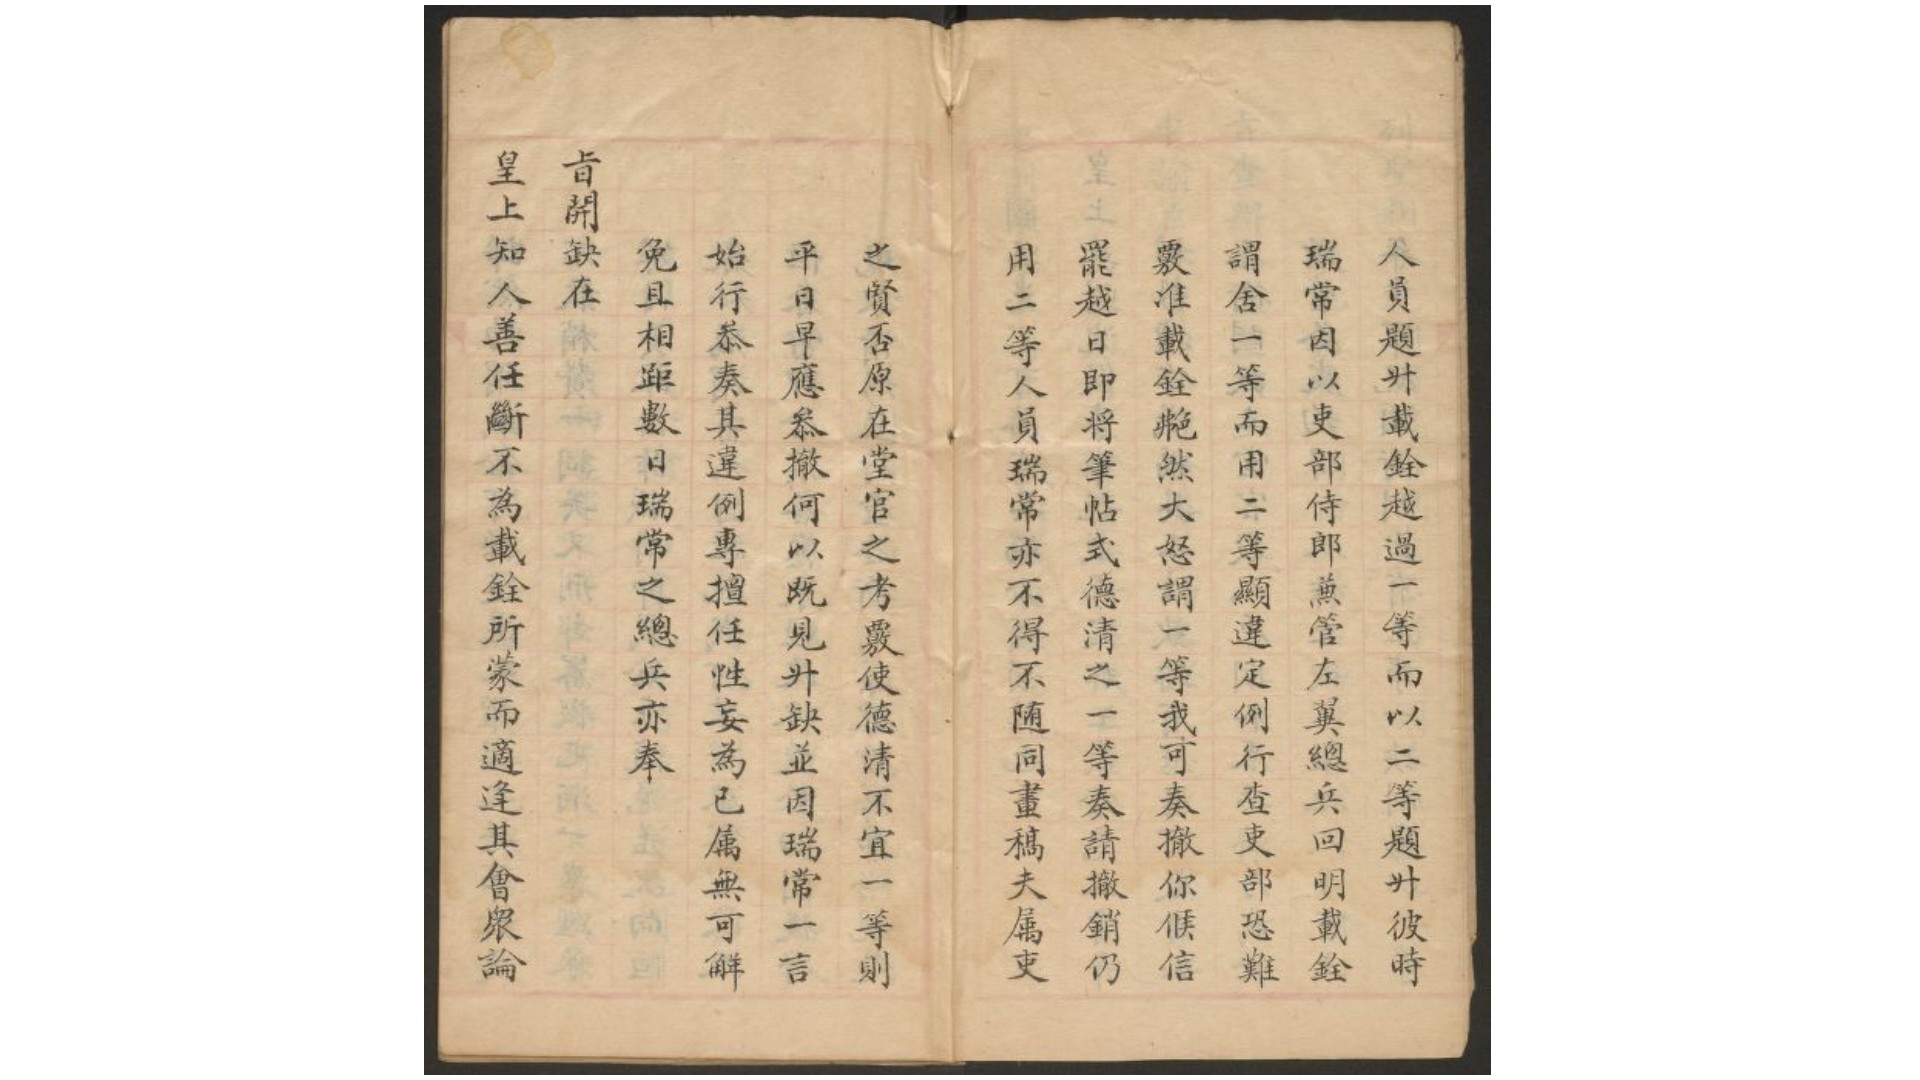 人員題升載銓越過一等而以二等題升彼時
瑞常因以吏部侍郎兼管左翼總兵回明載銓
謂舍一等而用二等顯違定例行查吏部恐難
覈准載銓艴然大怒謂一等我可奏撤你候信
罷越日即将筆帖式德清之一等奏請撤銷仍
用二等人員瑞常亦不得不随同畫稿夫属吏
之賢否原在堂官之考覈使德清不宜一等則
平日早應叅撤何以既見升缺並因瑞常一言
始行叅奏其違例專擅任性妄為已属無可解
免且相距數日瑞常之總兵亦奉
旨開缺在
皇上知人善任斷不為載銓所蒙而適逢其會衆論